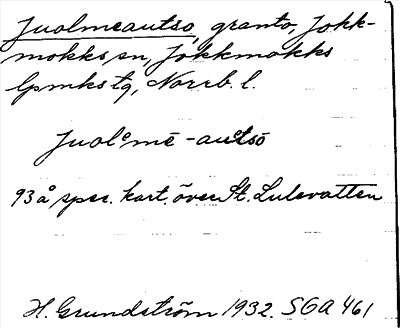 Juolmeautso, granto, Jokk-
mokks sn, Jokkmokks
lpmkstg, Norrb. l.
Juolᵉmē-autsō
93 å spec. kart. över St. Lulevatten
H. Grundström 1932. SOA 461